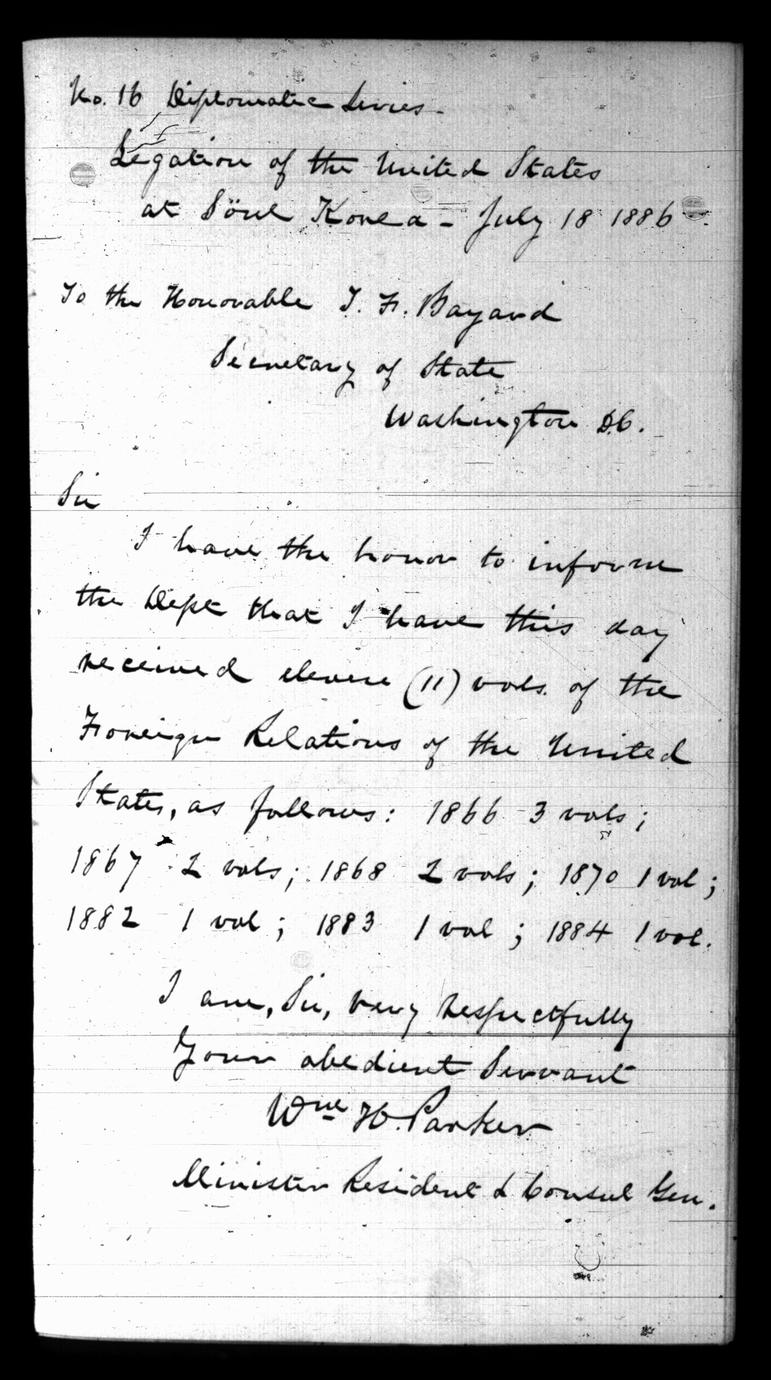 No. 16 Diplomatic Series.
Legation of the United States
at Söul Korea - July 18 1886
To the Honorable T. F. Bayard
Secretary of State
Washington D.C.
Sir
I have the honor to inform
the Dept that I have this day
received eleven (11) vols. of the
Foreign Relations of the United
States, as follows: 1866 3 vols;
1867 2 vols; 1868 2 vols; 1870 1 vol;
1882 1 vol; 1883 1 vol; 1884 1 vol.
I am, Sir, very respectfully
Your obedient Servant
Wm H. Parker
Minister Resident & Consul Gen.